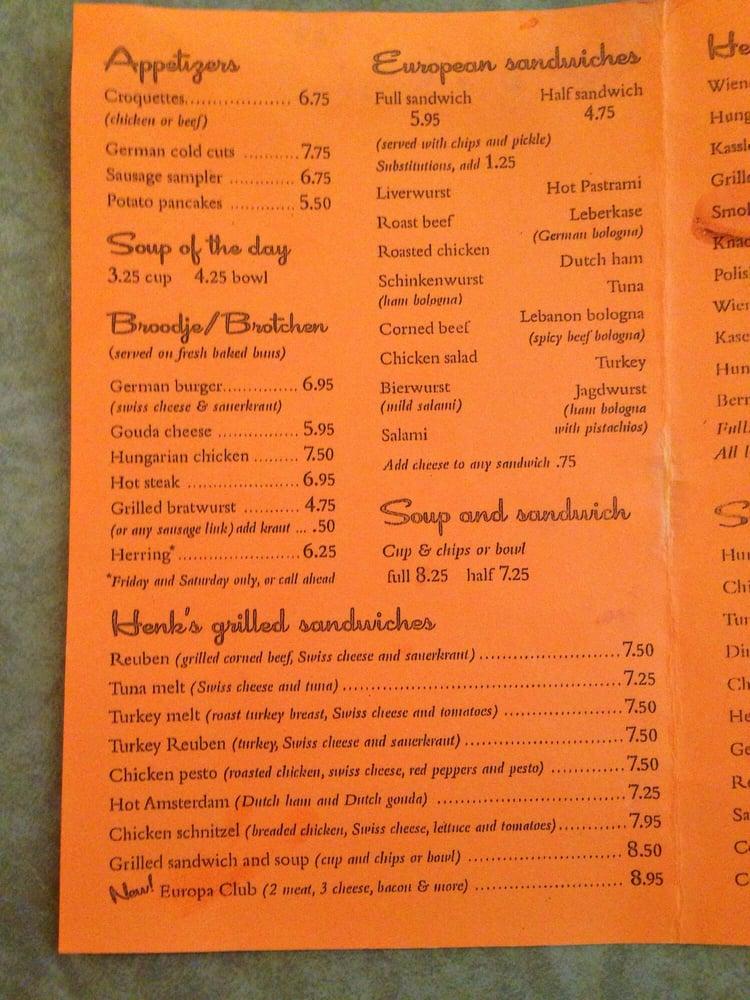 Appetizers
Croquettes..................... 6.75
(chicken or beef)
German cold cuts ...........7.75
Sausage sampler ............. 6.75
Potato pancakes .............. 5.50
Soup of the day
3.25 cup 4.25 bowl
Broodje/Brotchen
(served on fresh baked buns)
German burger............. 6.95
(swiss cheese & sauerkraut)
Gouda cheese ................ 5.95
Hungarian chicken ........ 7.50
Hot steak ..................... 6.95
Grilled bratwurst ........... 4.75
(or any sausage link) add kraut ... .50
Herring*..................... 6.25
*Friday and Saturday only, or call ahead
European sandwiches
Full sandwich Half sandwich
5.95 4.75
(served with chips and pickle)
Substitutions, add 1.25
Liverwurst
Roast beef
Roasted chicken
Schinkenwurst
(ham bologna)
Corned beef
Chicken salad
Bierwurst
(mild salami)
Salami
Hot Pastrami
Leberkase
(German bologna)
Dutch ham
Tuna
Lebanon bologna
(spicy beef bologna)
Turkey
Jagdwurst
(ham bologna
with pistachios)
Add cheese to any sandwich .75
Soup and sandwich
Cup & chips or bowl
full 8.25 half 7.25
Henk's grilled sandwiches
Reuben (grilled corned beef, Swiss cheese and sauerkraut) ........................7.50
Tuna melt (Swiss cheese and tuna) ................................................7.25
Turkey melt (roast turkey breast, Swiss cheese and tomatoes) .....................7.50
Turkey Reuben (turkey, Swiss cheese and sauerkraut) ............................7.50
Chicken pesto (roasted chicken, swiss cheese, red peppers and pesto) .............7.50
Hot Amsterdam (Dutch ham and Dutch gouda) ................................. 7.25
Chicken schnitzel (breaded chicken, Swiss cheese, lettuce and tomatoes)............7.95
Grilled sandwich and soup (cup and chips or bowl) ........................... 8.50
New! Europa Club (2 meat, 3 cheese, bacon & more) .......................... 8.95